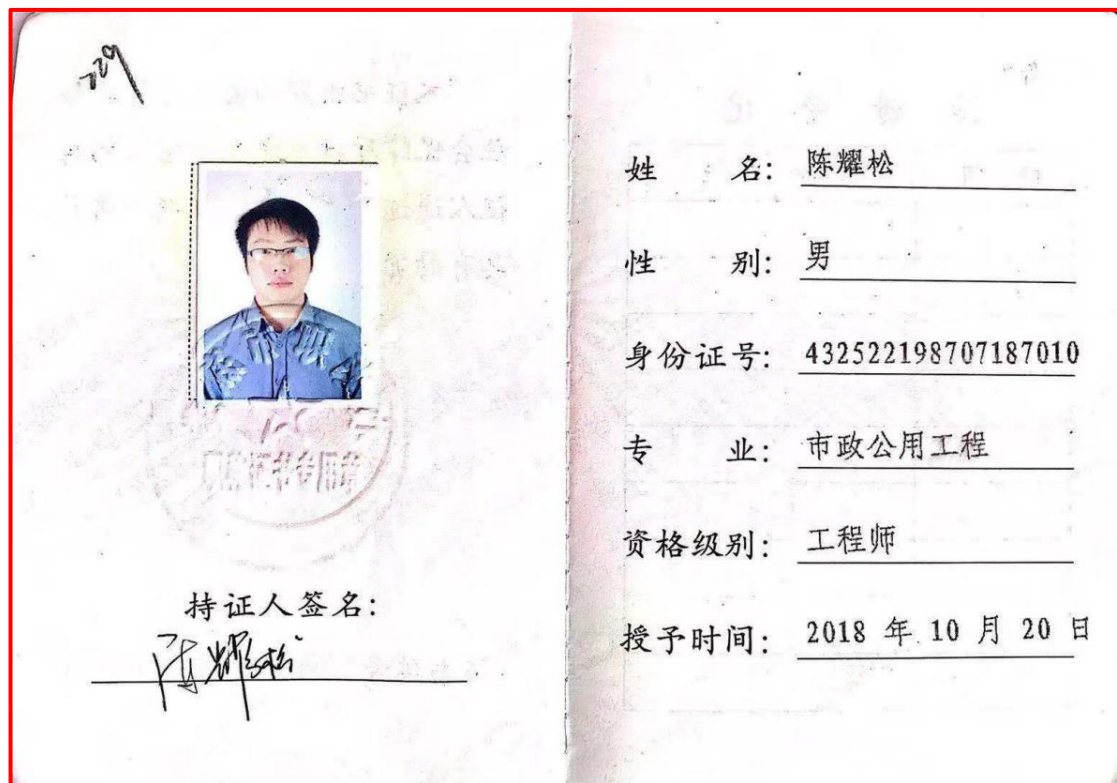 729
持证人签名:
陈耀松
姓 名: 陈耀松
性 别: 男
身份证号: 432522198707187010
专 业: 市政公用工程
资格级别: 工程师
授予时间: 2018 年 10 月 20 日